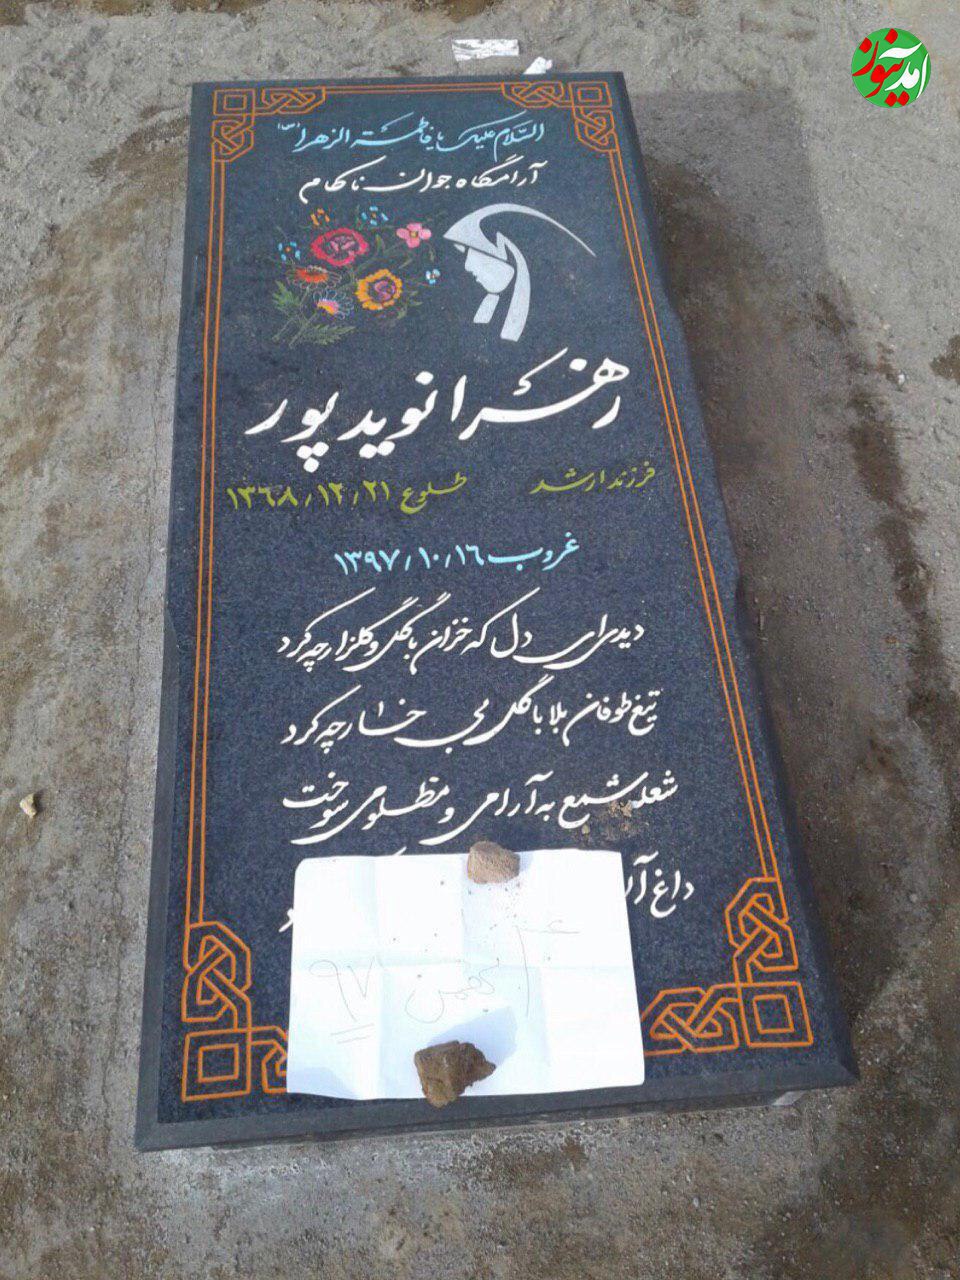 آمدنیوز
السّلام علیک یا فاطمة الزهرا (س)
آرامگاه جوان ناکام
زهرا نویدپور
فرزند ارشد طلوع ۱۳۶۸/۱۲/۲۱
غروب ۱۳۹۷/۱۰/۱۶
دیدی ای دل که خزان با گل و گلزار چه کرد
تیغ طوفان بلا با گل بی خار چه کرد
شعله شمع به آرامی و مظلومی سوخت
داغ
بهمن ۹۷